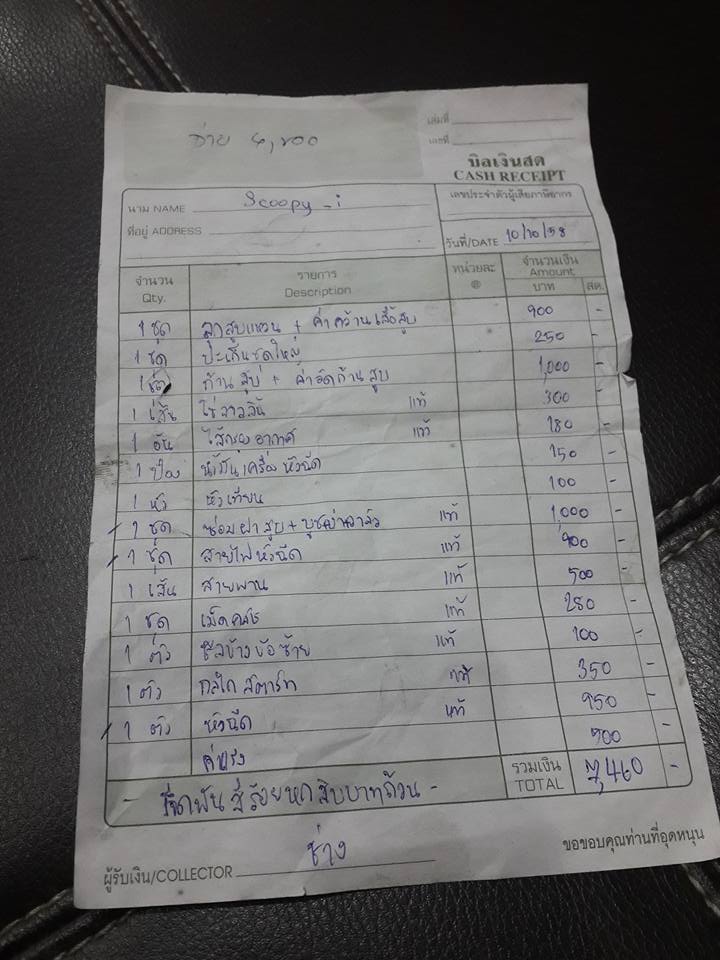 จ่าย 4,200
เล่มที่
เลขที่
บิลเงินสด
CASH RECEIPT
นาม NAME Scoopy-i
เลขประจำตัวผู้เสียภาษีอากร
ที่อยู่ ADDRESS
วันที่/DATE 10/10/58
จำนวน รายการ หน่วยละ จำนวนเงิน
Qty. Description @ Amount
บาท สต.
1 ชุด ลูกสูบแหวน + ค่าคว้านเสื้อสูบ 900 -
1 ชุด ปะเก็นชุดใหญ่ 250 -
1 ก้านสูบ + ค่าอัดก้านสูบ 1,000 -
1 เส้น โซ่ราวลิ้น แท้ 300 -
1 อัน ไส้กรองอากาศ แท้ 180 -
1 ป๋อง น้ำมันเครื่อง หัวฉีด 150 -
1 หัว หัวเทียน 100 -
1 ชุด ซ่อมฝาสูบ + แท้ 1,000 -
1 ชุด สายไฟหัวฉีด แท้ 900 -
1 เส้น สายพาน แท้ 500 -
1 ชุด เม็ด แท้ 280 -
1 ตัว ซีลข้างข้อซ้าย แท้ 100 -
1 ตัว กลไกสตาร์ท แท้ 350 -
1 ตัว หัวฉีด แท้ 950 -
ค่าแรง 900 -
- เจ็ดพันสี่ร้อยหกสิบบาทถ้วน - รวมเงิน TOTAL 7,460 -
ช่าง
ผู้รับเงิน/COLLECTOR
ขอขอบคุณท่านที่อุดหนุน